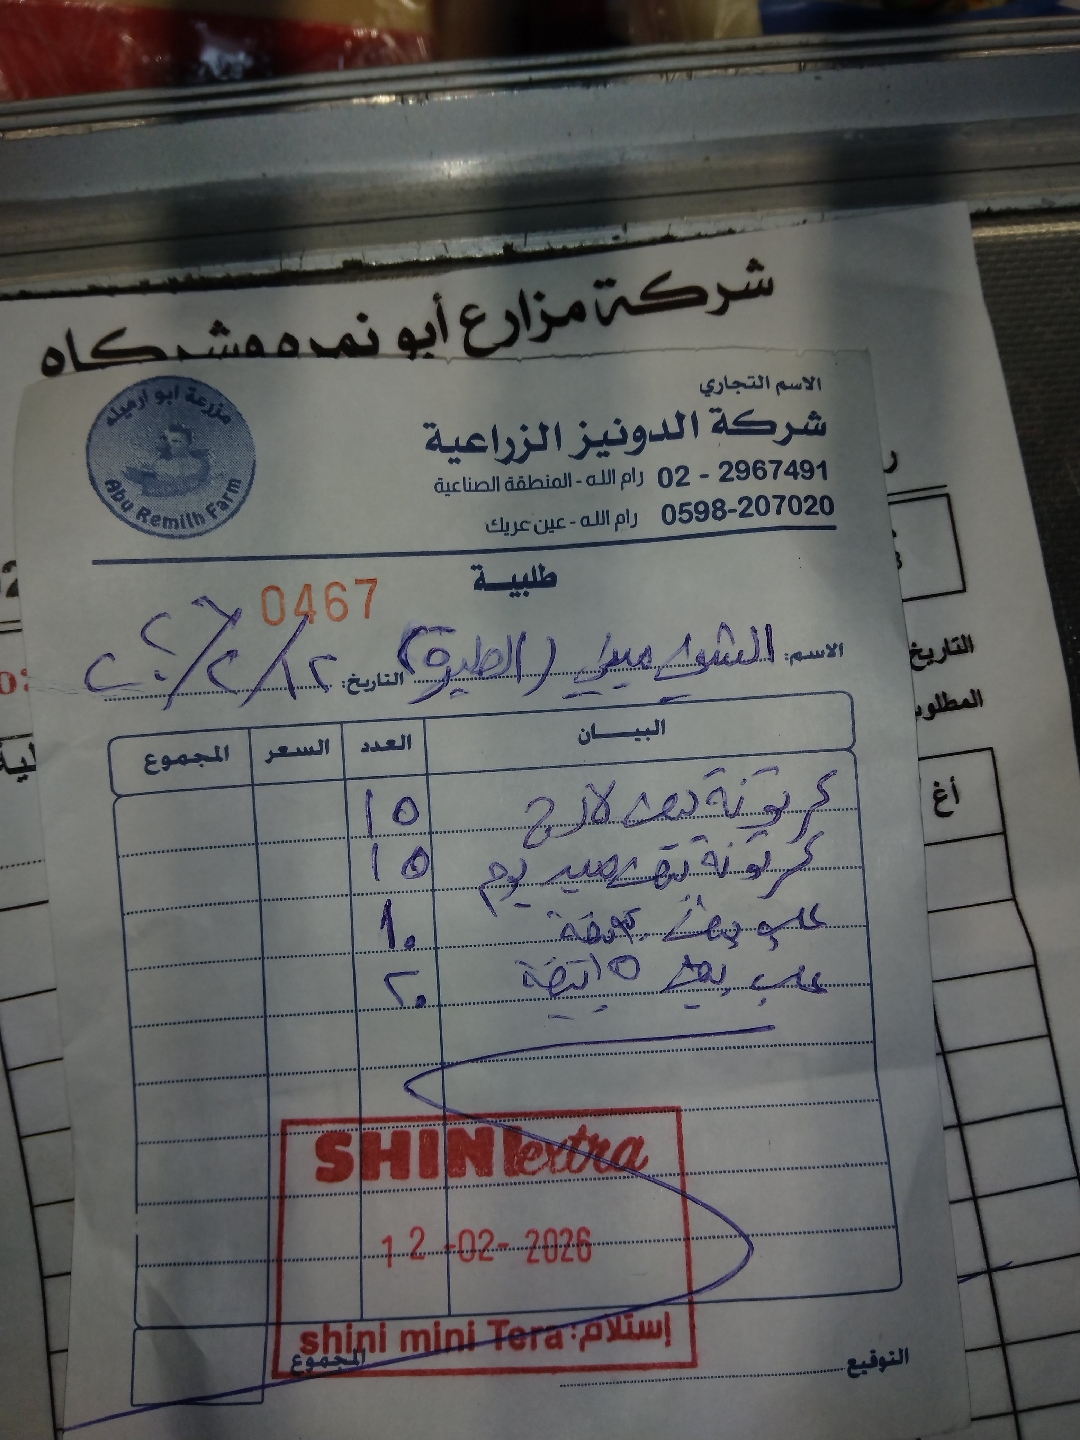 شركة مزارع أبو نمره وشركاه
مزرعة ابو ارميله
Abu Remilh Farm
الاسم التجاري
شركة الدونيز الزراعية
02 - 2967491 رام الله - المنطقة الصناعية
0598-207020 رام الله - عين عريك
طلبية
0467
الاسم: الشني ميني (الطيرة) التاريخ: ١٢/٢/٢٠٢٦
التاريخ
المطلوب
البيــــان العدد السعر المجموع
أغ
كرتونة بيض لارج 15
كرتونة بيض ميديوم 15
علب بيض ١٠
علب بيض 15 بيضة ٢٠
SHINI extra
12 -02- 2026
إستلام: shini mini Tera
المجموع
التوقيع